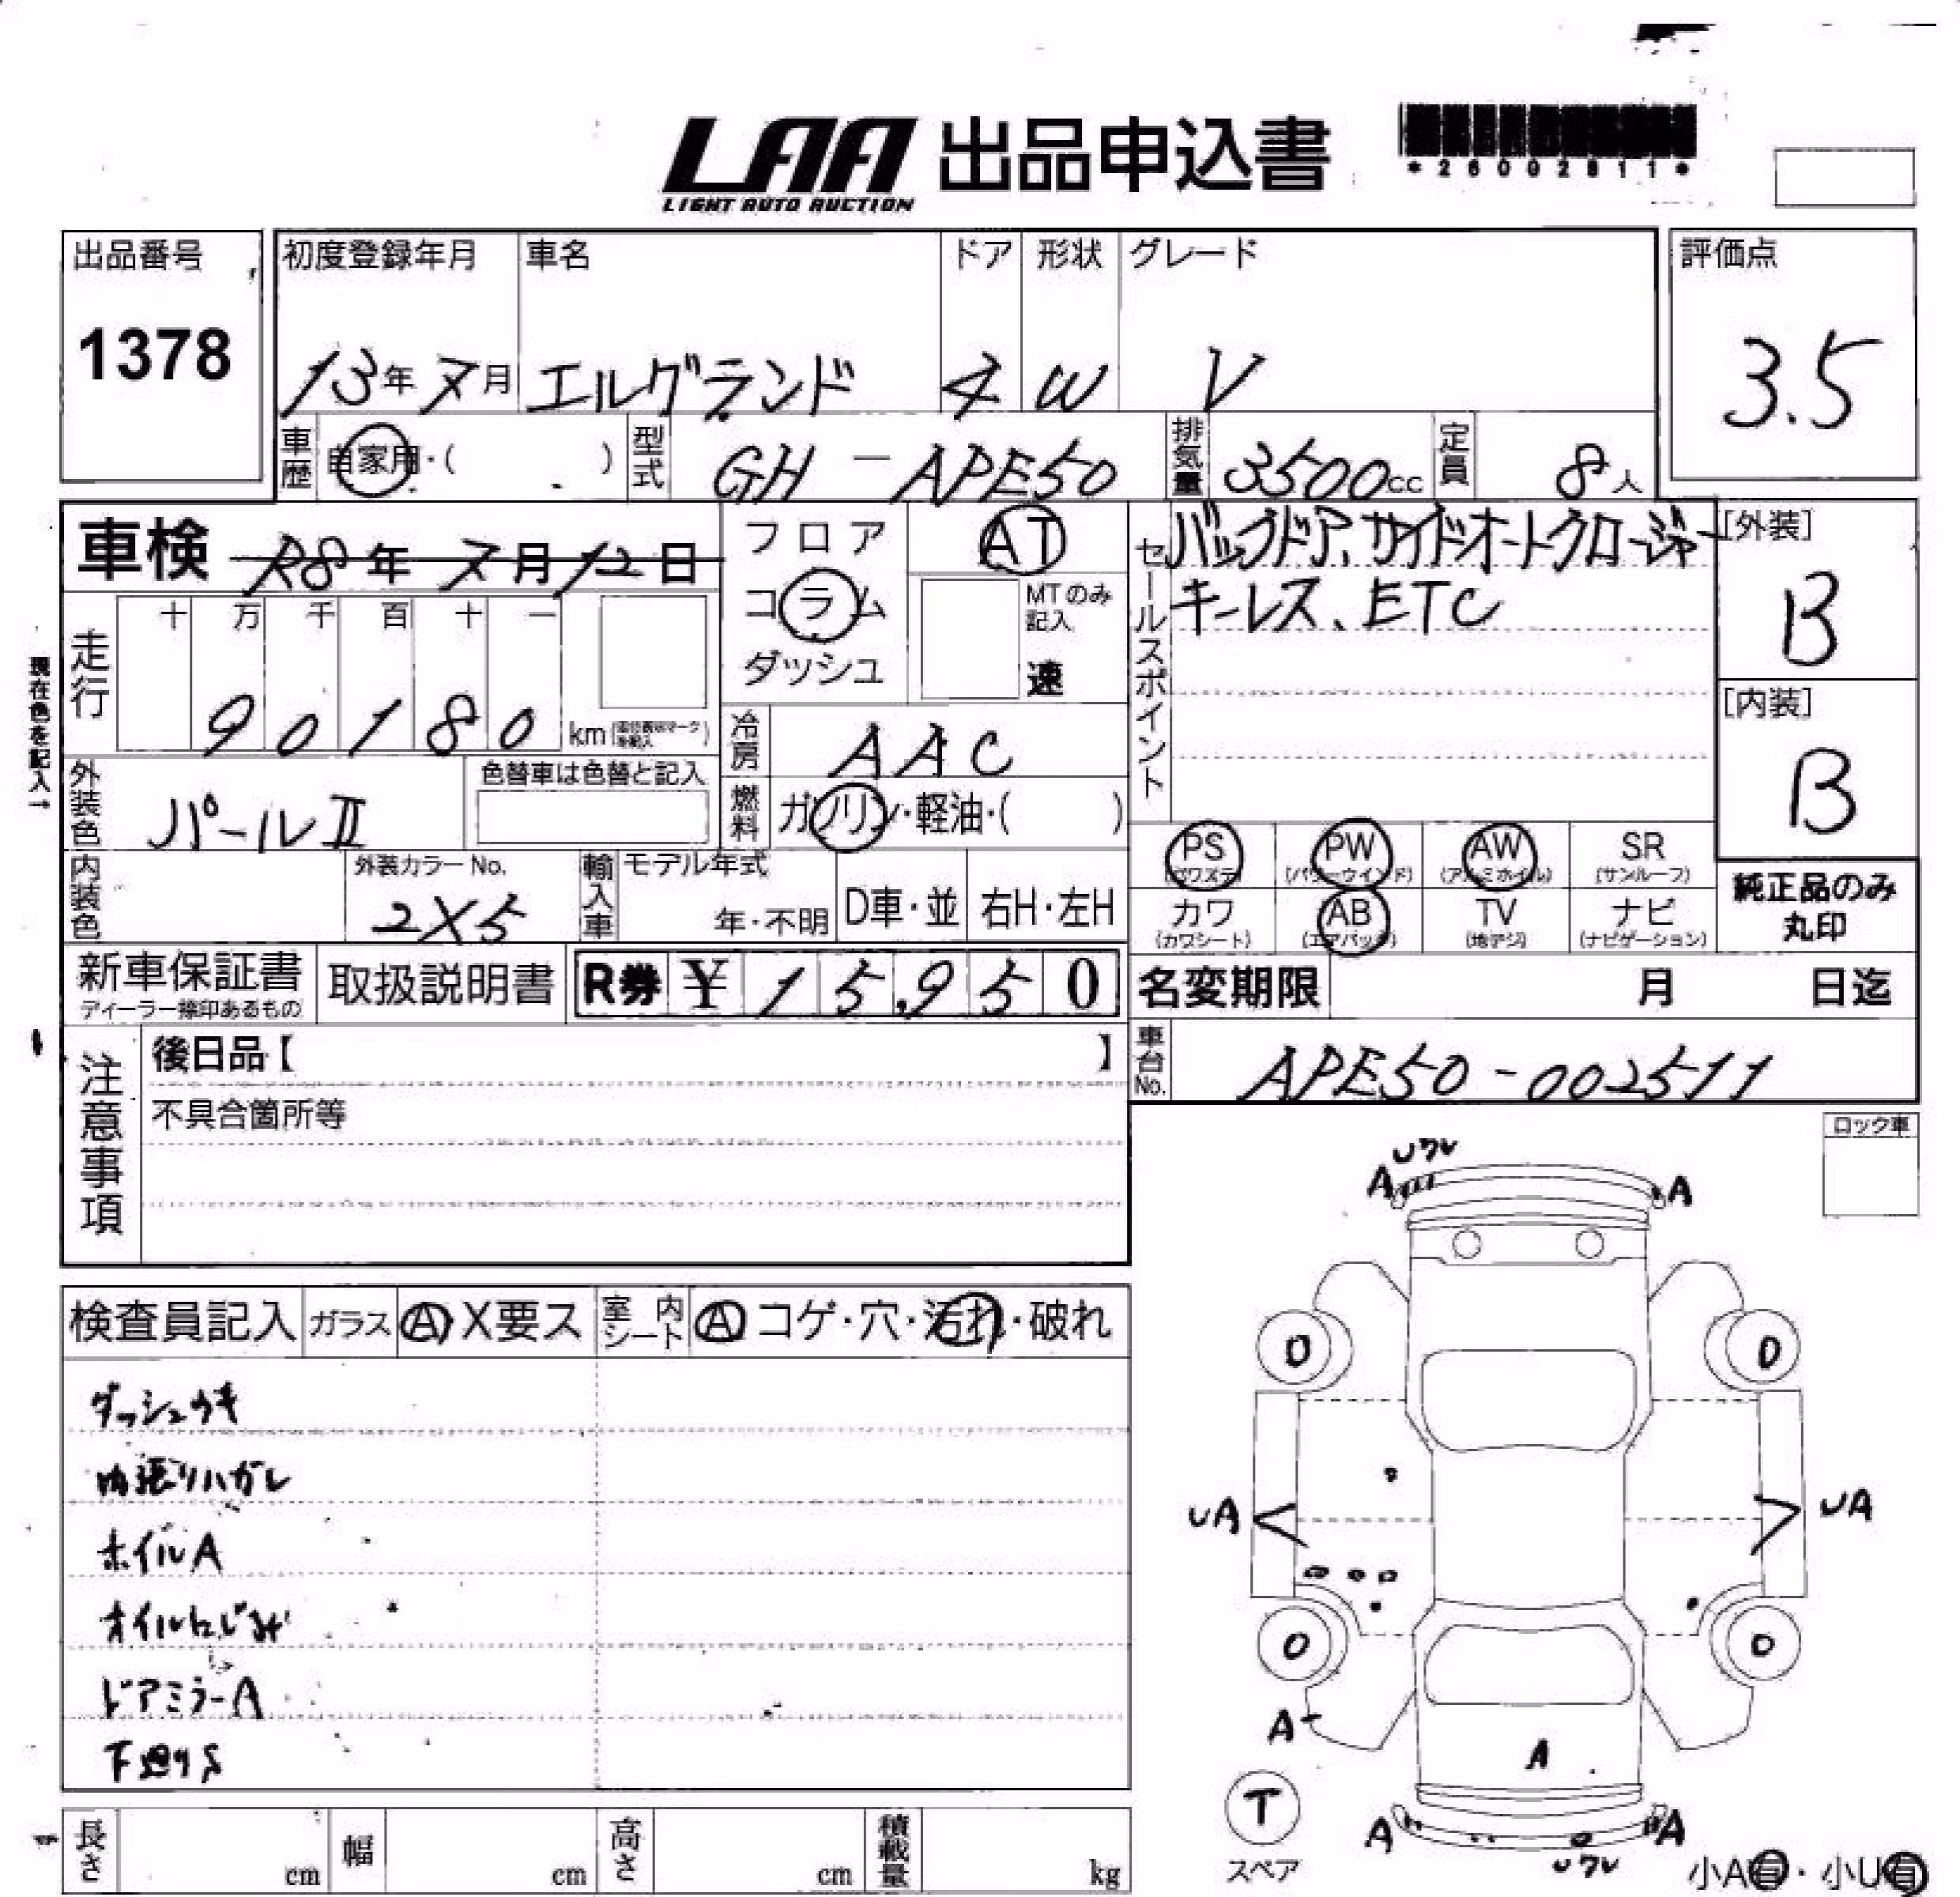 LAA 出品申込書
LIGHT AUTO AUCTION
*26002811*
出品番号
1378
初度登録年月 車名 ドア 形状 グレード
13年7月 エルグランド 4 W V
評価点
3.5
車歴 自家用・( ) 型式 GH-APE50 排気量 3500cc 定員 8人
車検 R8年7月12日
フロア
コラム
ダッシュ
AT
MTのみ
記入
速
セールスポイント
バックドア、サイドオートクロージャー
キーレス、ETC
[外装]
B
[内装]
B
現在色を記入→
走行 十 万 千 百 十 一
90180 km
冷房 AAC
外装色 パールII
色替車は色替と記入
燃料 ガソリン・軽油・( )
内装色
外装カラーNo.
2X5
輸入車 モデル年式
年・不明 D車・並 右H・左H
PS PW AW SR
(パワステ) (パワーウインド) (アルミホイル) (サンルーフ)
カワ AB TV ナビ
(カワシート) (エアバッグ) (地デジ) (ナビゲーション)
純正品のみ
丸印
新車保証書
ディーラー捺印あるもの
取扱説明書
R券 ¥15,950
名変期限 月 日迄
車台No. APE50-002511
注意事項
後日品【 】
不具合箇所等
ロック車
検査員記入 ガラス A X要ス 室内シート A コゲ・穴・汚れ・破れ
ダッシュウキ
内張リハガレ
ホイルA
オイルにじみ
ドアミラーA
下廻りS
Uワレ
A A
UA UA
A
A
T
スペア
A A
Uワレ
小A有・小U有
長さ cm 幅 cm 高さ cm 積載量 kg